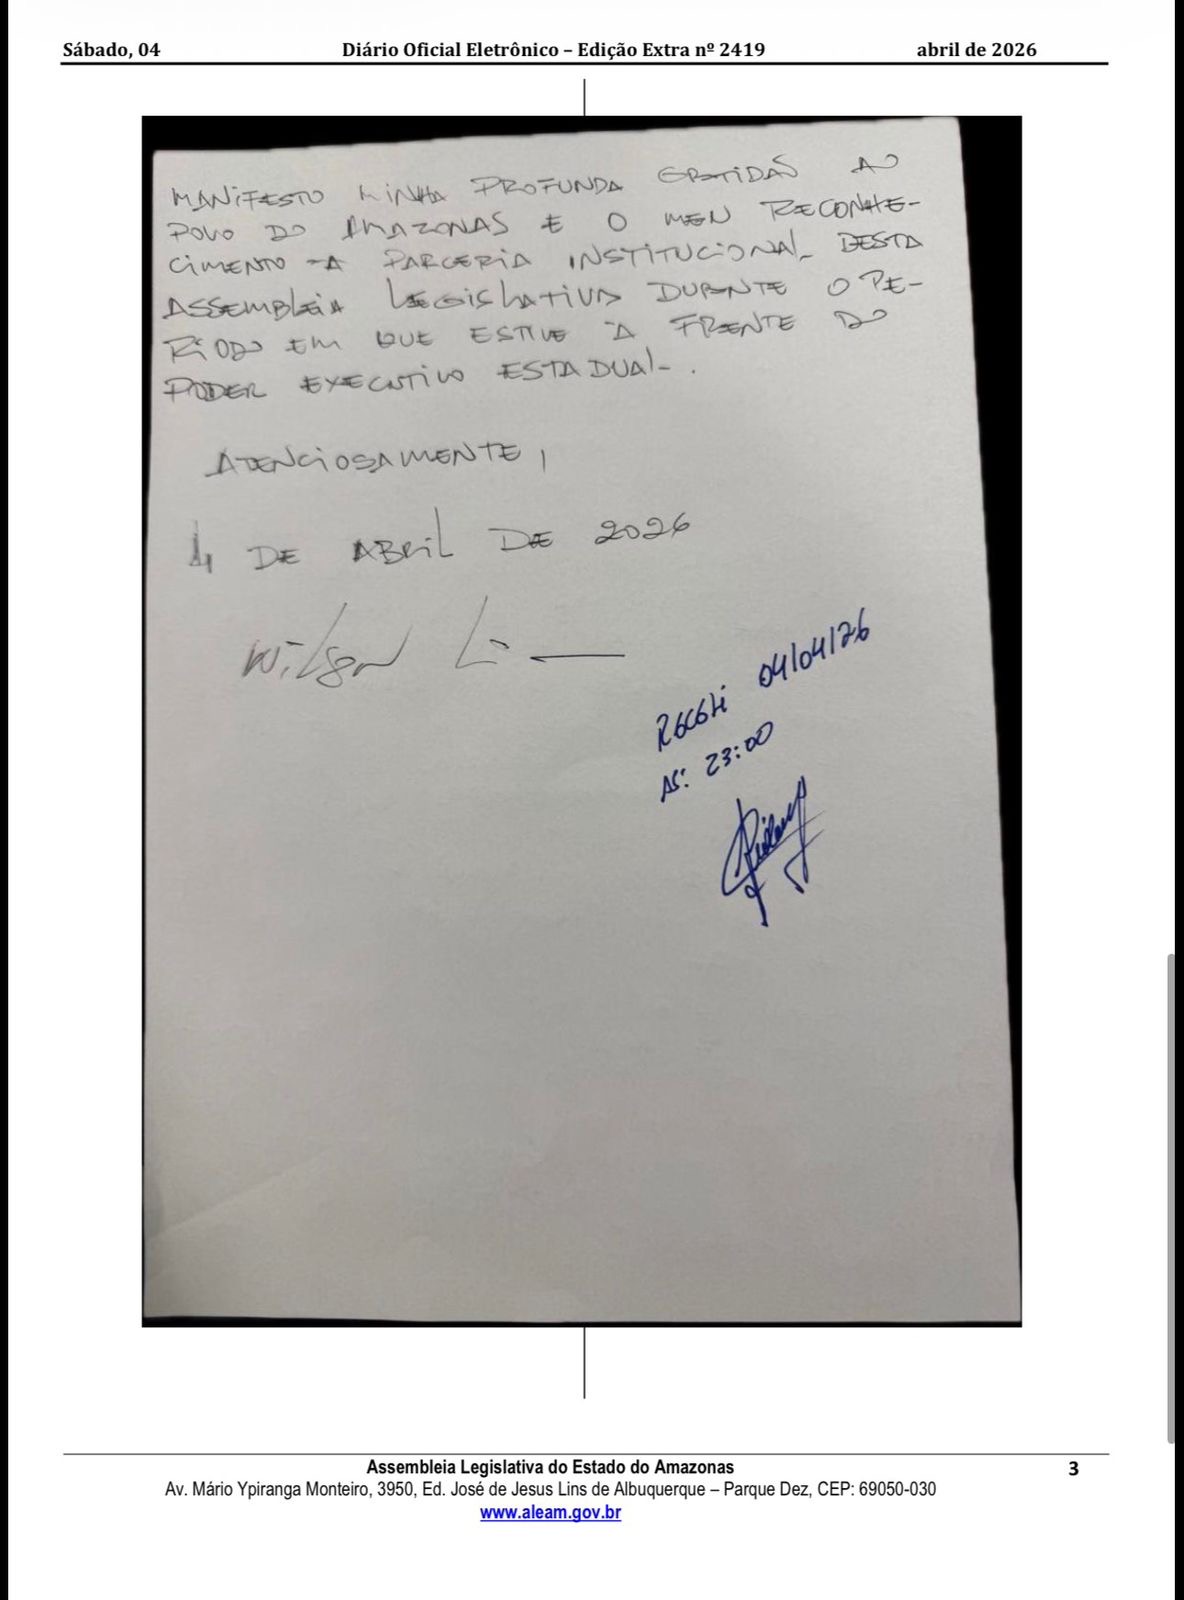 Sábado, 04 Diário Oficial Eletrônico – Edição Extra nº 2419 abril de 2026
MANIFESTO MINHA PROFUNDA GRATIDÃO AO
POVO DO AMAZONAS E O MEU RECONHE-
CIMENTO À PARCERIA INSTITUCIONAL DESTA
ASSEMBLEIA LEGISLATIVA DURANTE O PE-
RÍODO EM QUE ESTIVE À FRENTE DO
PODER EXECUTIVO ESTADUAL.
ATENCIOSAMENTE,
4 DE ABRIL DE 2026
Wilson Lima
RECEBI 04/04/26
AS: 23:00
Assembleia Legislativa do Estado do Amazonas 3
Av. Mário Ypiranga Monteiro, 3950, Ed. José de Jesus Lins de Albuquerque – Parque Dez, CEP: 69050-030
www.aleam.gov.br